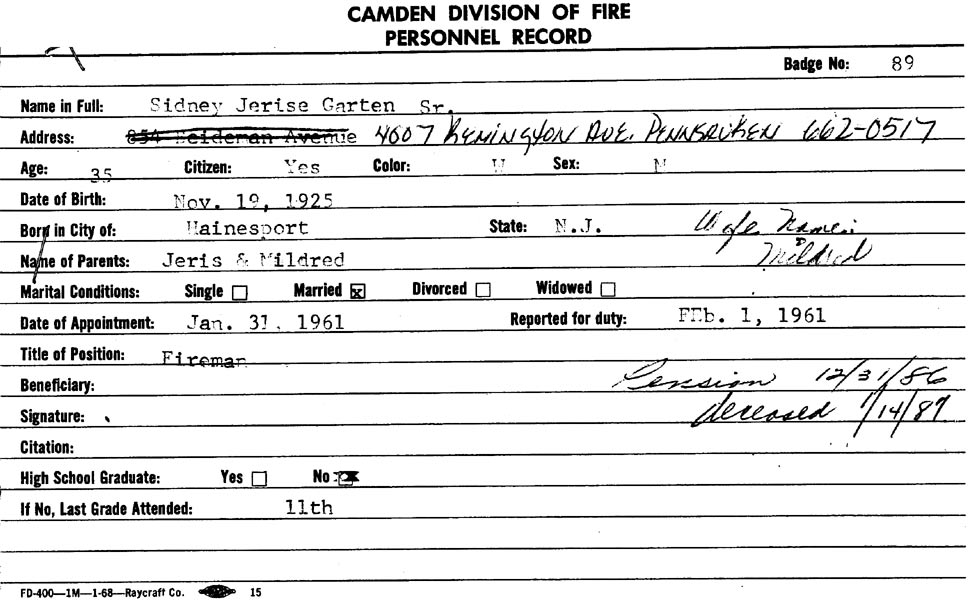 CAMDEN DIVISION OF FIRE
PERSONNEL RECORD
Badge No: 89
Name in Full: Sidney Jerise Garten Sr.
Address: 854 Beideman Avenue 4007 REMINGTON AVE. PENNSAUKEN 662-0517
Age: 35 Citizen: Yes Color: W Sex: M
Date of Birth: Nov. 19, 1925
Born in City of: Hainesport State: N.J. Wife Name:
Name of Parents: Jeris & Mildred Mildred
Marital Conditions: Single Married x Divorced Widowed
Date of Appointment: Jan. 31, 1961 Reported for duty: FEb. 1, 1961
Title of Position: Fireman
Beneficiary: Pension 12/31/86
Signature: deceased 1/14/87
Citation:
High School Graduate: Yes No
If No, Last Grade Attended: 11th
FD-400—1M—1-68—Raycraft Co. 15